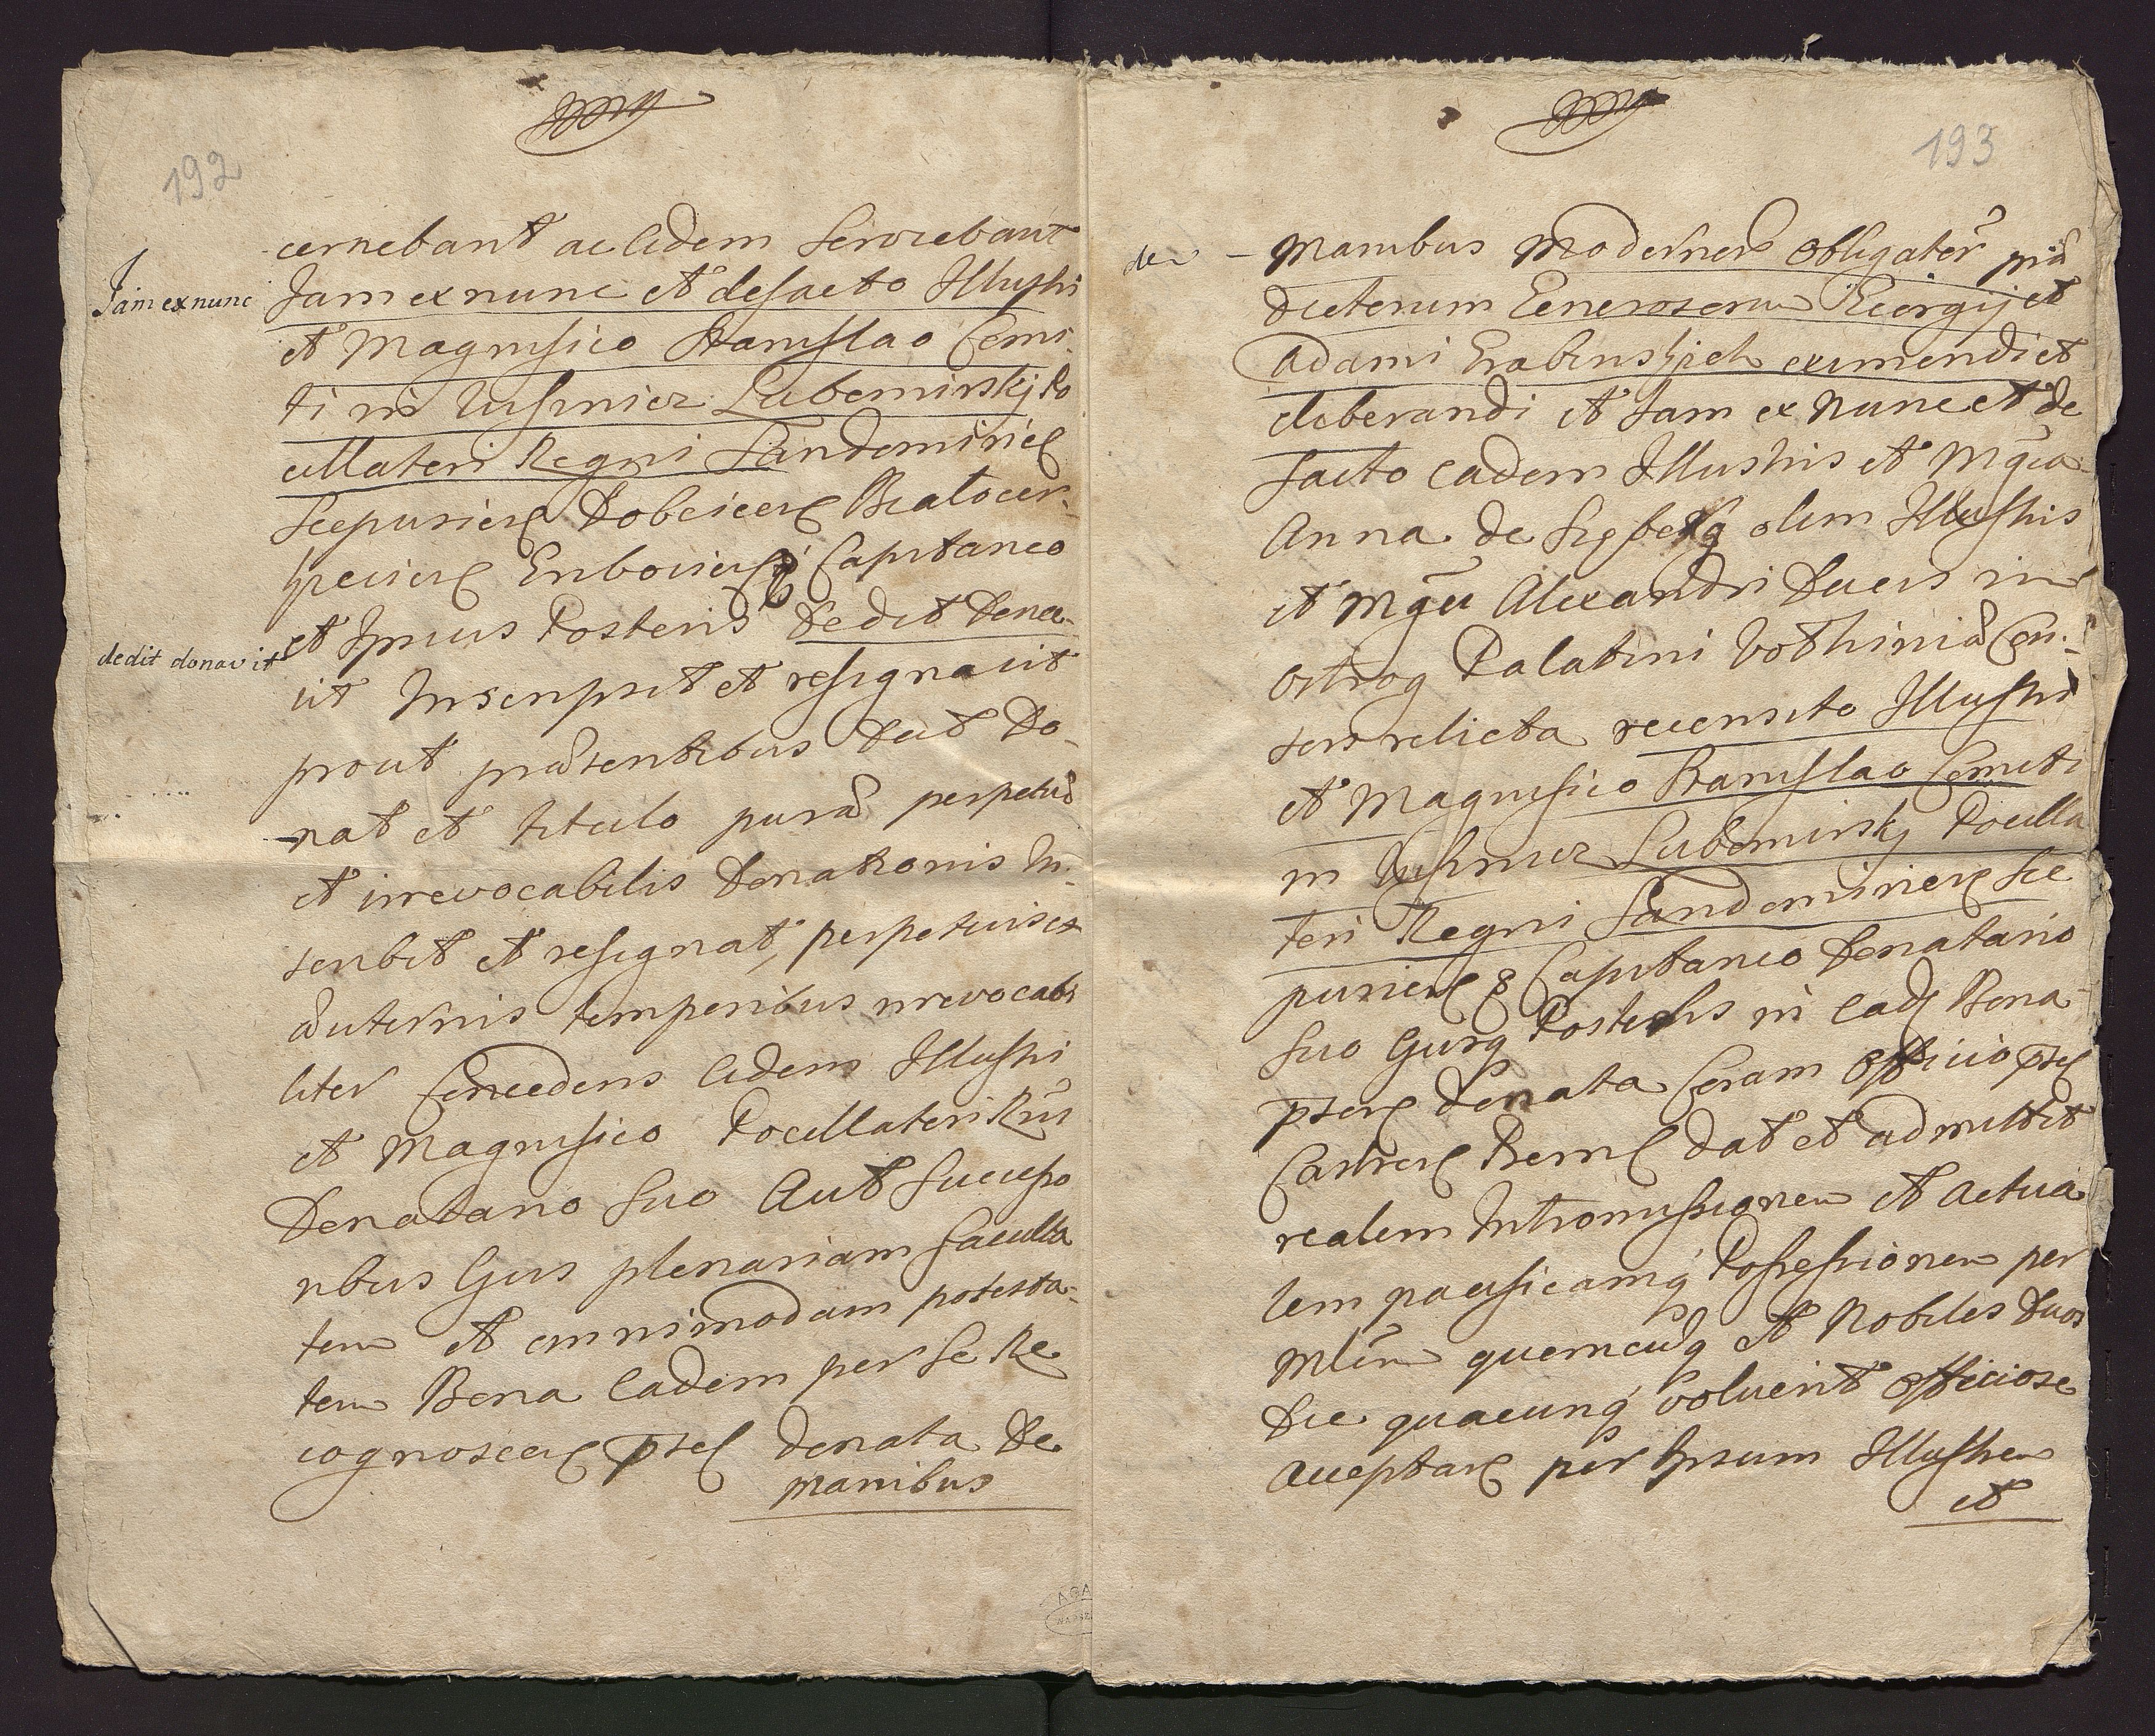 192
cernebant ac eidem servicebant
Jam ex nunc
Jam ex nunc et defacto Illustri
et Magnifico Stanislao Comi
ti in Wisnicz Lubomirskj Po
cillatori Regni Sandomirien
Scepusien Dobcicen Bialocer-
kiecien Capitaneo
et Ipsius Posteris dedit dona-
dedit donavit
vit Inscripsit et resignavit
prout praesentibus dat Do-
nat et titulo purae perpetuae
et irrevocabilis Donationis In-
scribit et resignat, perpetuis et
aeviternis temporibus irrevocabi
liter Concedens eidem Illustri
et Magnifico Pocillatori Rni
Donatario Suo Aut Successo
ribus Ejus plenariam faculta
tem et omnimodam potesta-
tem Bona eadem per se Re
cognoscen pten donata De
manibus
193
de
Manibus Modernor Obligator prae
dictorum Generosorum Georgij et
Adami Grabinskich eximendi et
eliberandi et Jam ex Nunc et de
facto eadem Illustris et Mgca
Anna de olim Illustris
et Mgci Alexandri Ducis in
Ostrog Palatini Volhiniae Con-
sors relicta recensito Illustri
et Magnifico Stanislao Comiti
in Wisnicz Lubomirskj Pocilla
tori Regni Sandomirien Sce
pusien & Capitaneo Donatario
Suo Ejusq Posteris in ead Bona
pten donata Coram Officio pten
Castren Prem dat et admittit
realem Intromissionem et actua
lem pacificamq Possessionem per
Mlem quemcunq et Nobiles Duos
Die quacunq voluerit Officiose
acceptan per Ipsum Illustrem
et